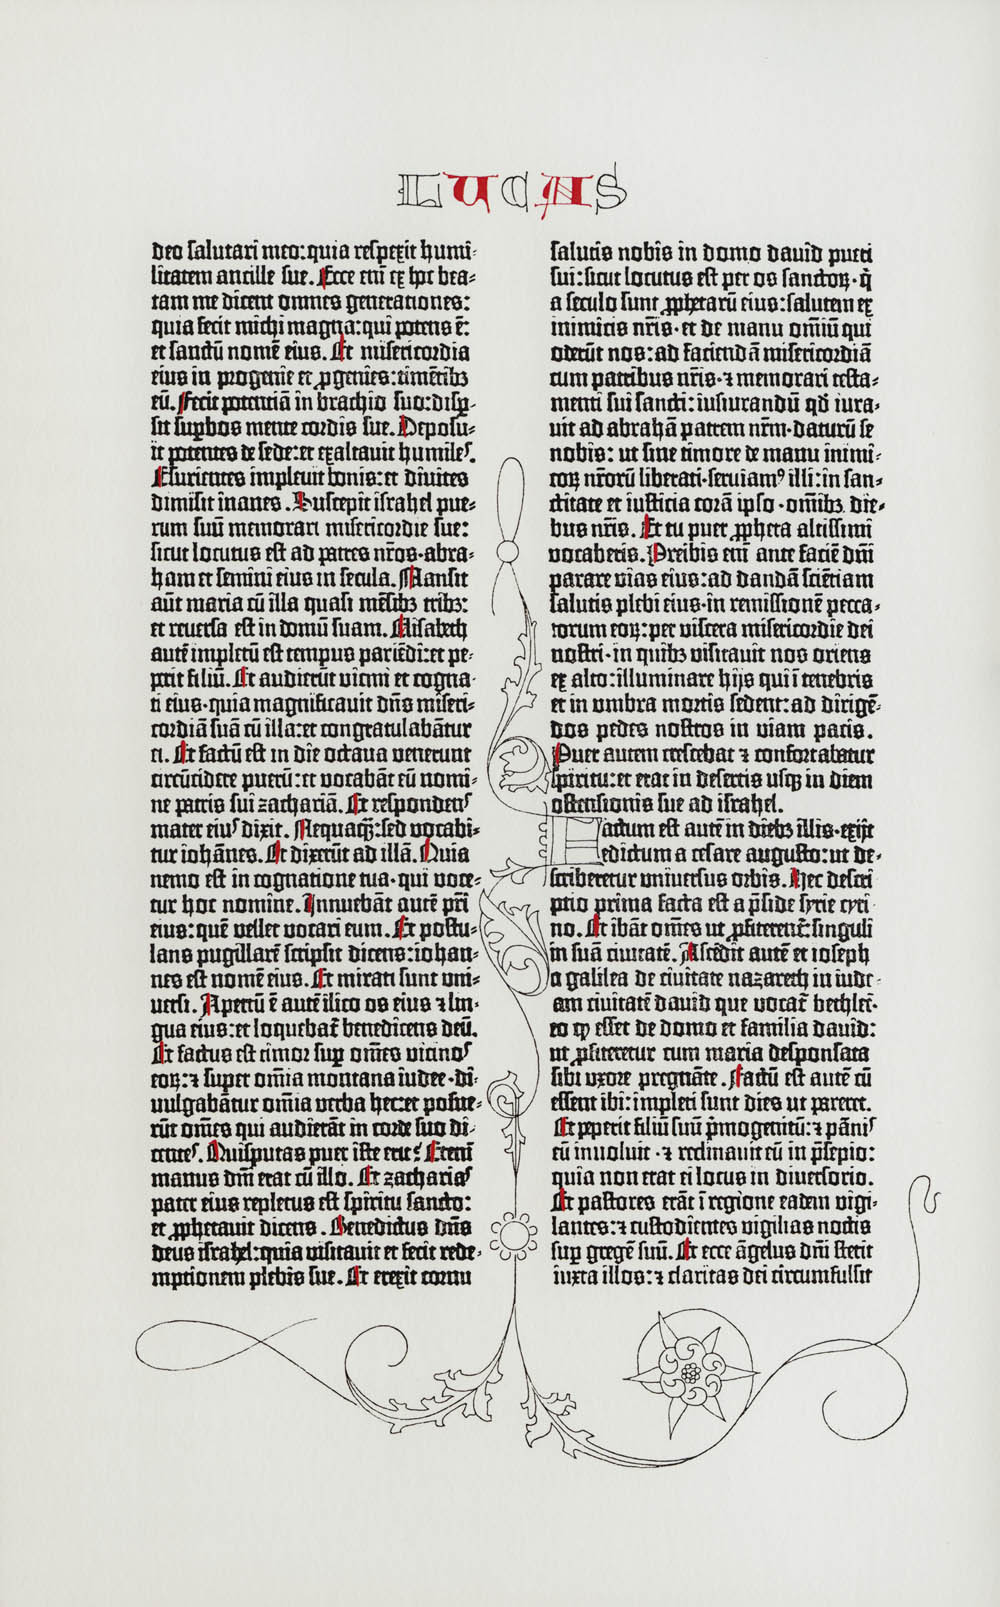 LUCAS
deo salutari meo: quia respexit humi-
litatem ancille sue. Ecce eni ex hoc bea-
tam me dicent omnes generationes:
quia fecit michi magna: qui potens ē:
et sanctū nomē eius. Et misericordia
eius in progenie et ꝓgenies: timētibꝫ
eū. Fecit potentiā in brachio suo: disꝑ-
sit suꝑbos mente cordis sue. Deposu-
it potentes de sede: et exaltauit humiles.
Esurientes impleuit bonis: et diuites
dimisit inanes. Suscepit israhel pue-
rum suū memorari misericordie sue:
sicut locutus est ad patres nr̄os · abra-
ham et semini eius in secula. Mansit
aūt maria cū illa quasi mēsibꝫ tribꝫ:
et reuersa est in domū suam. Elisabeth
autē impletū est tempus pariēdi: et pe-
perit filiū. Et audierūt vicini et cogna-
ti eius · quia magnificauit dn̄s miseri-
cordiā suā cū illa: et congratulabātur
ei. Et factū est in die octaua venerunt
circūcidere puerū: et vocabāt eū nomi-
ne patris sui zachariā. Et respondens
mater eius dixit. Nequaqꝫ: sed vocabi-
tur iohānes. Et dixerūt ad illā. Quia
nemo est in cognatione tua · qui voce-
tur hoc nomine. Innuebāt autē pr̄i
eius: quē vellet vocari eum. Et postu-
lans pugillarē scripsit dicens: iohan-
nes est nomē eius. Et mirati sunt uni-
uersi. Apertū ē autē ilico os eius ⁊ lin-
gua eius: et loquebat̄ benedicens deū.
Et factus est timor suꝑ om̄es vicinos
eoꝝ: ⁊ super om̄ia montana iudee · di-
vulgabātur om̄ia verba hec: et posue-
rūt om̄es qui audierāt in corde suo di-
centes. Quis putas puer iste erit? Etenī
manus dn̄i erat cū illo. Et zacharias
pater eius repletus est spiritu sancto:
et ꝓphetauit dicens. Benedictus dn̄s
deus israhel: quia visitauit et fecit rede-
mptionem plebis sue. Et erexit cornu
salutis nobis in domo dauid pueri
sui: sicut locutus est per os sanctoꝝ · q̄
a seculo sunt ꝓphetarū eius: salutem ex
inimicis nr̄is · et de manu om̄iū qui
oderūt nos: ad faciendā misericordiā
cum patribus nr̄is · ⁊ memorari testa-
menti sui sancti: iusiurandū qd̄ iura-
uit ad abrahā patrem nr̄m · daturū se
nobis: ut sine timore de manu inimi-
coꝝ nr̄orū liberati · seruiamꝰ illi: in san-
ctitate et iusticia corā ipso · om̄ibꝫ die-
bus nr̄is. Et tu puer ꝓpheta altissimi
vocaberis. Preibis enī ante faciē dn̄i
parare vias eius: ad dandā scientiam
salutis plebi eius · in remissionē pecca-
torum eoꝝ: per viscera misericordie dei
nostri · in quibꝫ visitauit nos oriens
ex alto: illuminare hijs qui ī tenebris
et in umbra mortis sedent: ad dirigē-
dos pedes nostros in viam pacis.
Puer autem crescebat ⁊ confortabatur
spiritu: et erat in desertis usqꝫ in diem
ostensionis sue ad israhel.
Factum est autē in diebꝫ illis · exijt
edictum a cesare augusto: ut de-
scriberetur vniuersus orbis. Hec descri
ptio prima facta est a p̄side syrie cyri
no. Et ibāt om̄es ut ꝓfiterent̄: singuli
in suā ciuitatē. Ascēdit autē et ioseph
a galilea de ciuitate nazareth in iude
am ciuitatē dauid que vocat̄ bethleē ·
eo ꝙ esset de domo et familia dauid:
ut ꝓfiteretur cum maria desponsata
sibi vxore pregnāte. Factū est autē cū
essent ibi: impleti sunt dies ut pareret.
Et peperit filiū suū p̄mogenitū: ⁊ pānis
eū inuoluit · ⁊ reclinauit eū in p̄sepio:
quia non erat ei locus in diuersorio.
Et pastores erāt ī regione eadem vigi-
lantes: ⁊ custodientes vigilias noctis
suꝑ gregē suū. Et ecce āgelus dn̄i stetit
iuxta illos: ⁊ claritas dei circumfulsit